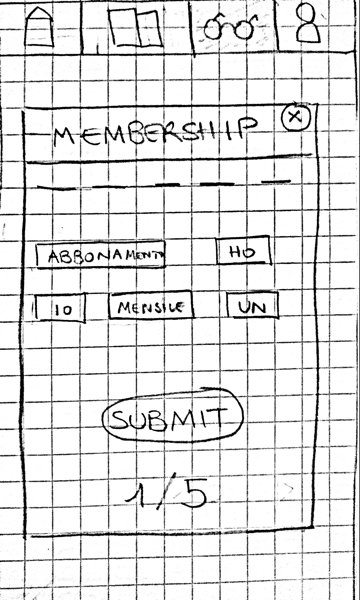 MEMBERSHIP
ABBONAMENTO HO
IO MENSILE UN
SUBMIT
1/5